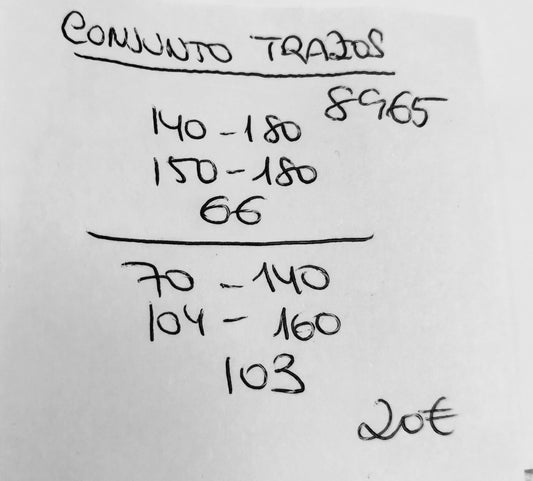 CONJUNTO TRAZOS
8965
140-180
150-180
66
70-140
104-160
103
20€